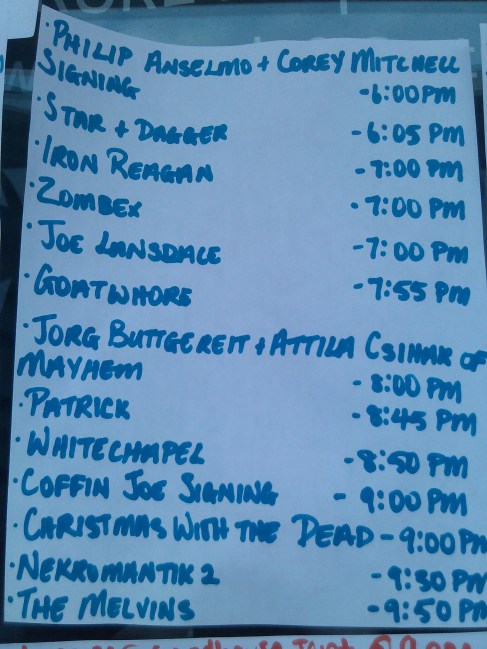 · PHILIP ANSELMO + COREY MITCHELL
SIGNING -6:00PM
· STAR + DAGGER -6:05 PM
· IRON REAGAN -7:00 PM
· ZOMBEX -7:00 PM
· JOE LANSDALE -7:00 PM
· GOATWHORE -7:55 PM
· JORG BUTTGEREIT + ATTILA CSIHAR OF
MAYHEM -8:00 PM
· PATRICK -8:45 PM
· WHITECHAPEL -8:50 PM
· COFFIN JOE SIGNING - 9:00 PM
· CHRISTMAS WITH THE DEAD -9:00PM
· NEKROMANTIK 2 -9:30 PM
· THE MELVINS -9:50 PM